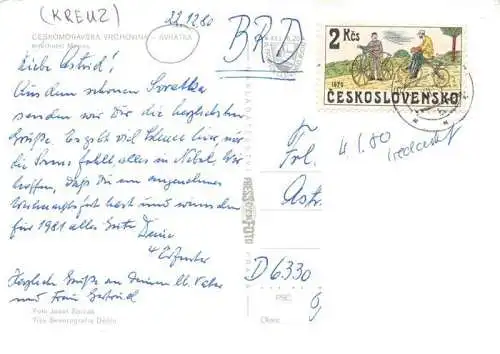 (KREUZ)
22.12.80
ČESKOMORAVSKÁ VRCHOVINA - SVRATKA
BRD
Liebe Astrid!
Aus dem schönen Svratka
senden wir Dir die herzlichsten
Grüße. Es gibt viel Schnee hier, nur
die Sonne fehlt, alles in Nebel. Wir
hoffen, daß Du ein angenehmes
Weihnachtsfest hast und wünschen
für 1981 alles Gute Deine
Herzliche Grüße an Deinen lb. Vater
und Frau Gertrud
Foto Josef
2 Kčs
1975
ČESKOSLOVENSKO
PRESSFOTO
PRAHA
Frl.
Astr.
4/1.80
D 6330
PSČ